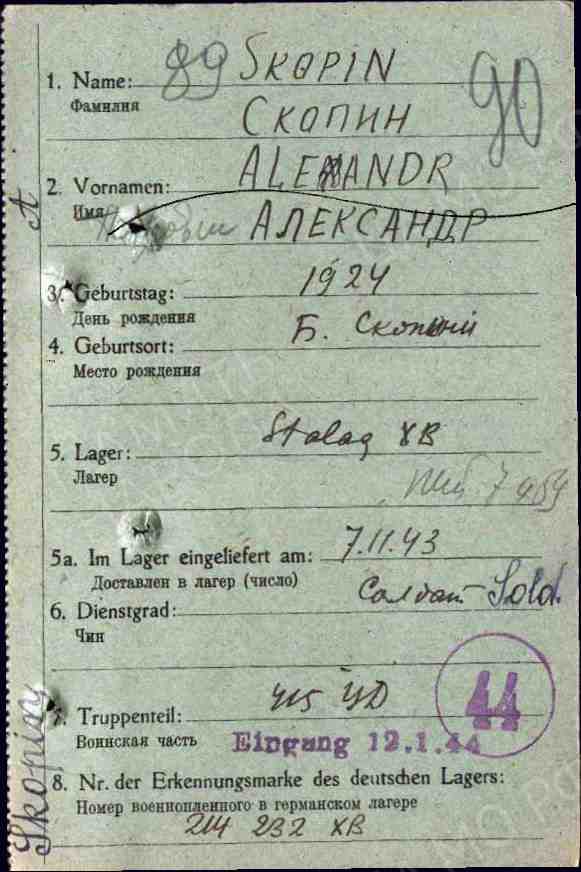 89 SKOPIN 90
1. Name:
Фамилия
СКОПИН
ALEXANDR
2. Vornamen:
Имя
АЛЕКСАНДР
1924
3. Geburtstag:
День рождения
Б. Скопин
4. Geburtsort:
Место рождения
Stalag XB
5. Lager:
Лагер
7.11.43
5a. Im Lager eingeliefert am:
Доставлен в лагер (число)
Солдат Sold.
6. Dienstgrad:
Чин
44
7. Truppenteil:
Воинская часть
Eingang 12.1.44
8. Nr. der Erkennungsmarke des deutschen Lagers:
Номер военнопленного в германском лагере
214 232 XB
A
Skopin